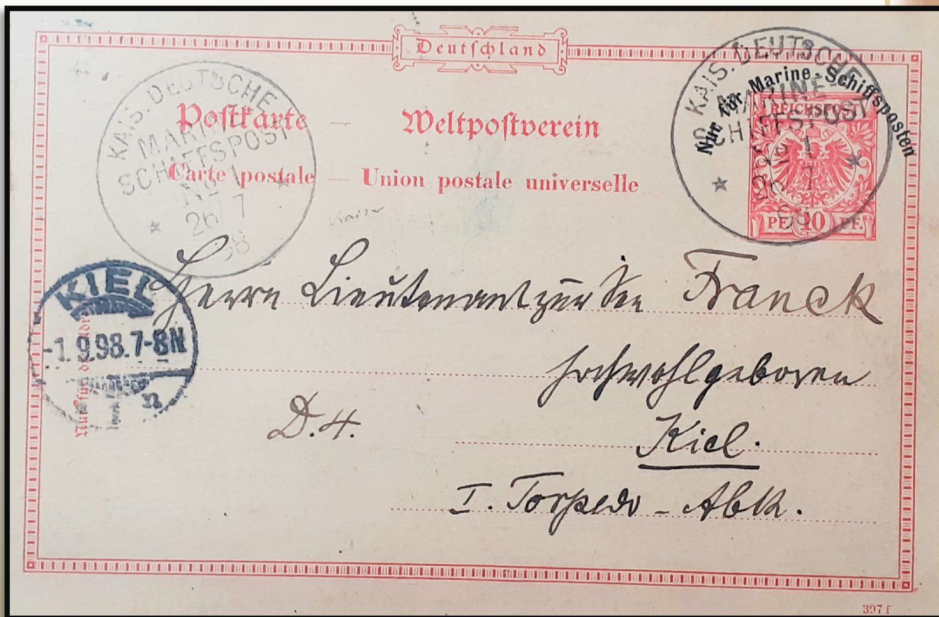 Deutschland
Postkarte — Weltpostverein
Carte postale — Union postale universelle
KAIS. DEUTSCHE
MARINE-
SCHIFFSPOST
No 1
26/7
98
KAIS. DEUTSCHE
MARINE-
SCHIFFSPOST
No 1
26/7
98
Nur für Marine-Schiffsposten
REICHSPOST
PF. 10 PF.
Kaiser
KIEL
-1.9.98.7-8N
1 n
Herrn Lieutenant zur See Franck
Hochwohlgeboren
D.4.
Kiel.
I. Torpedo-Abth.
397 f